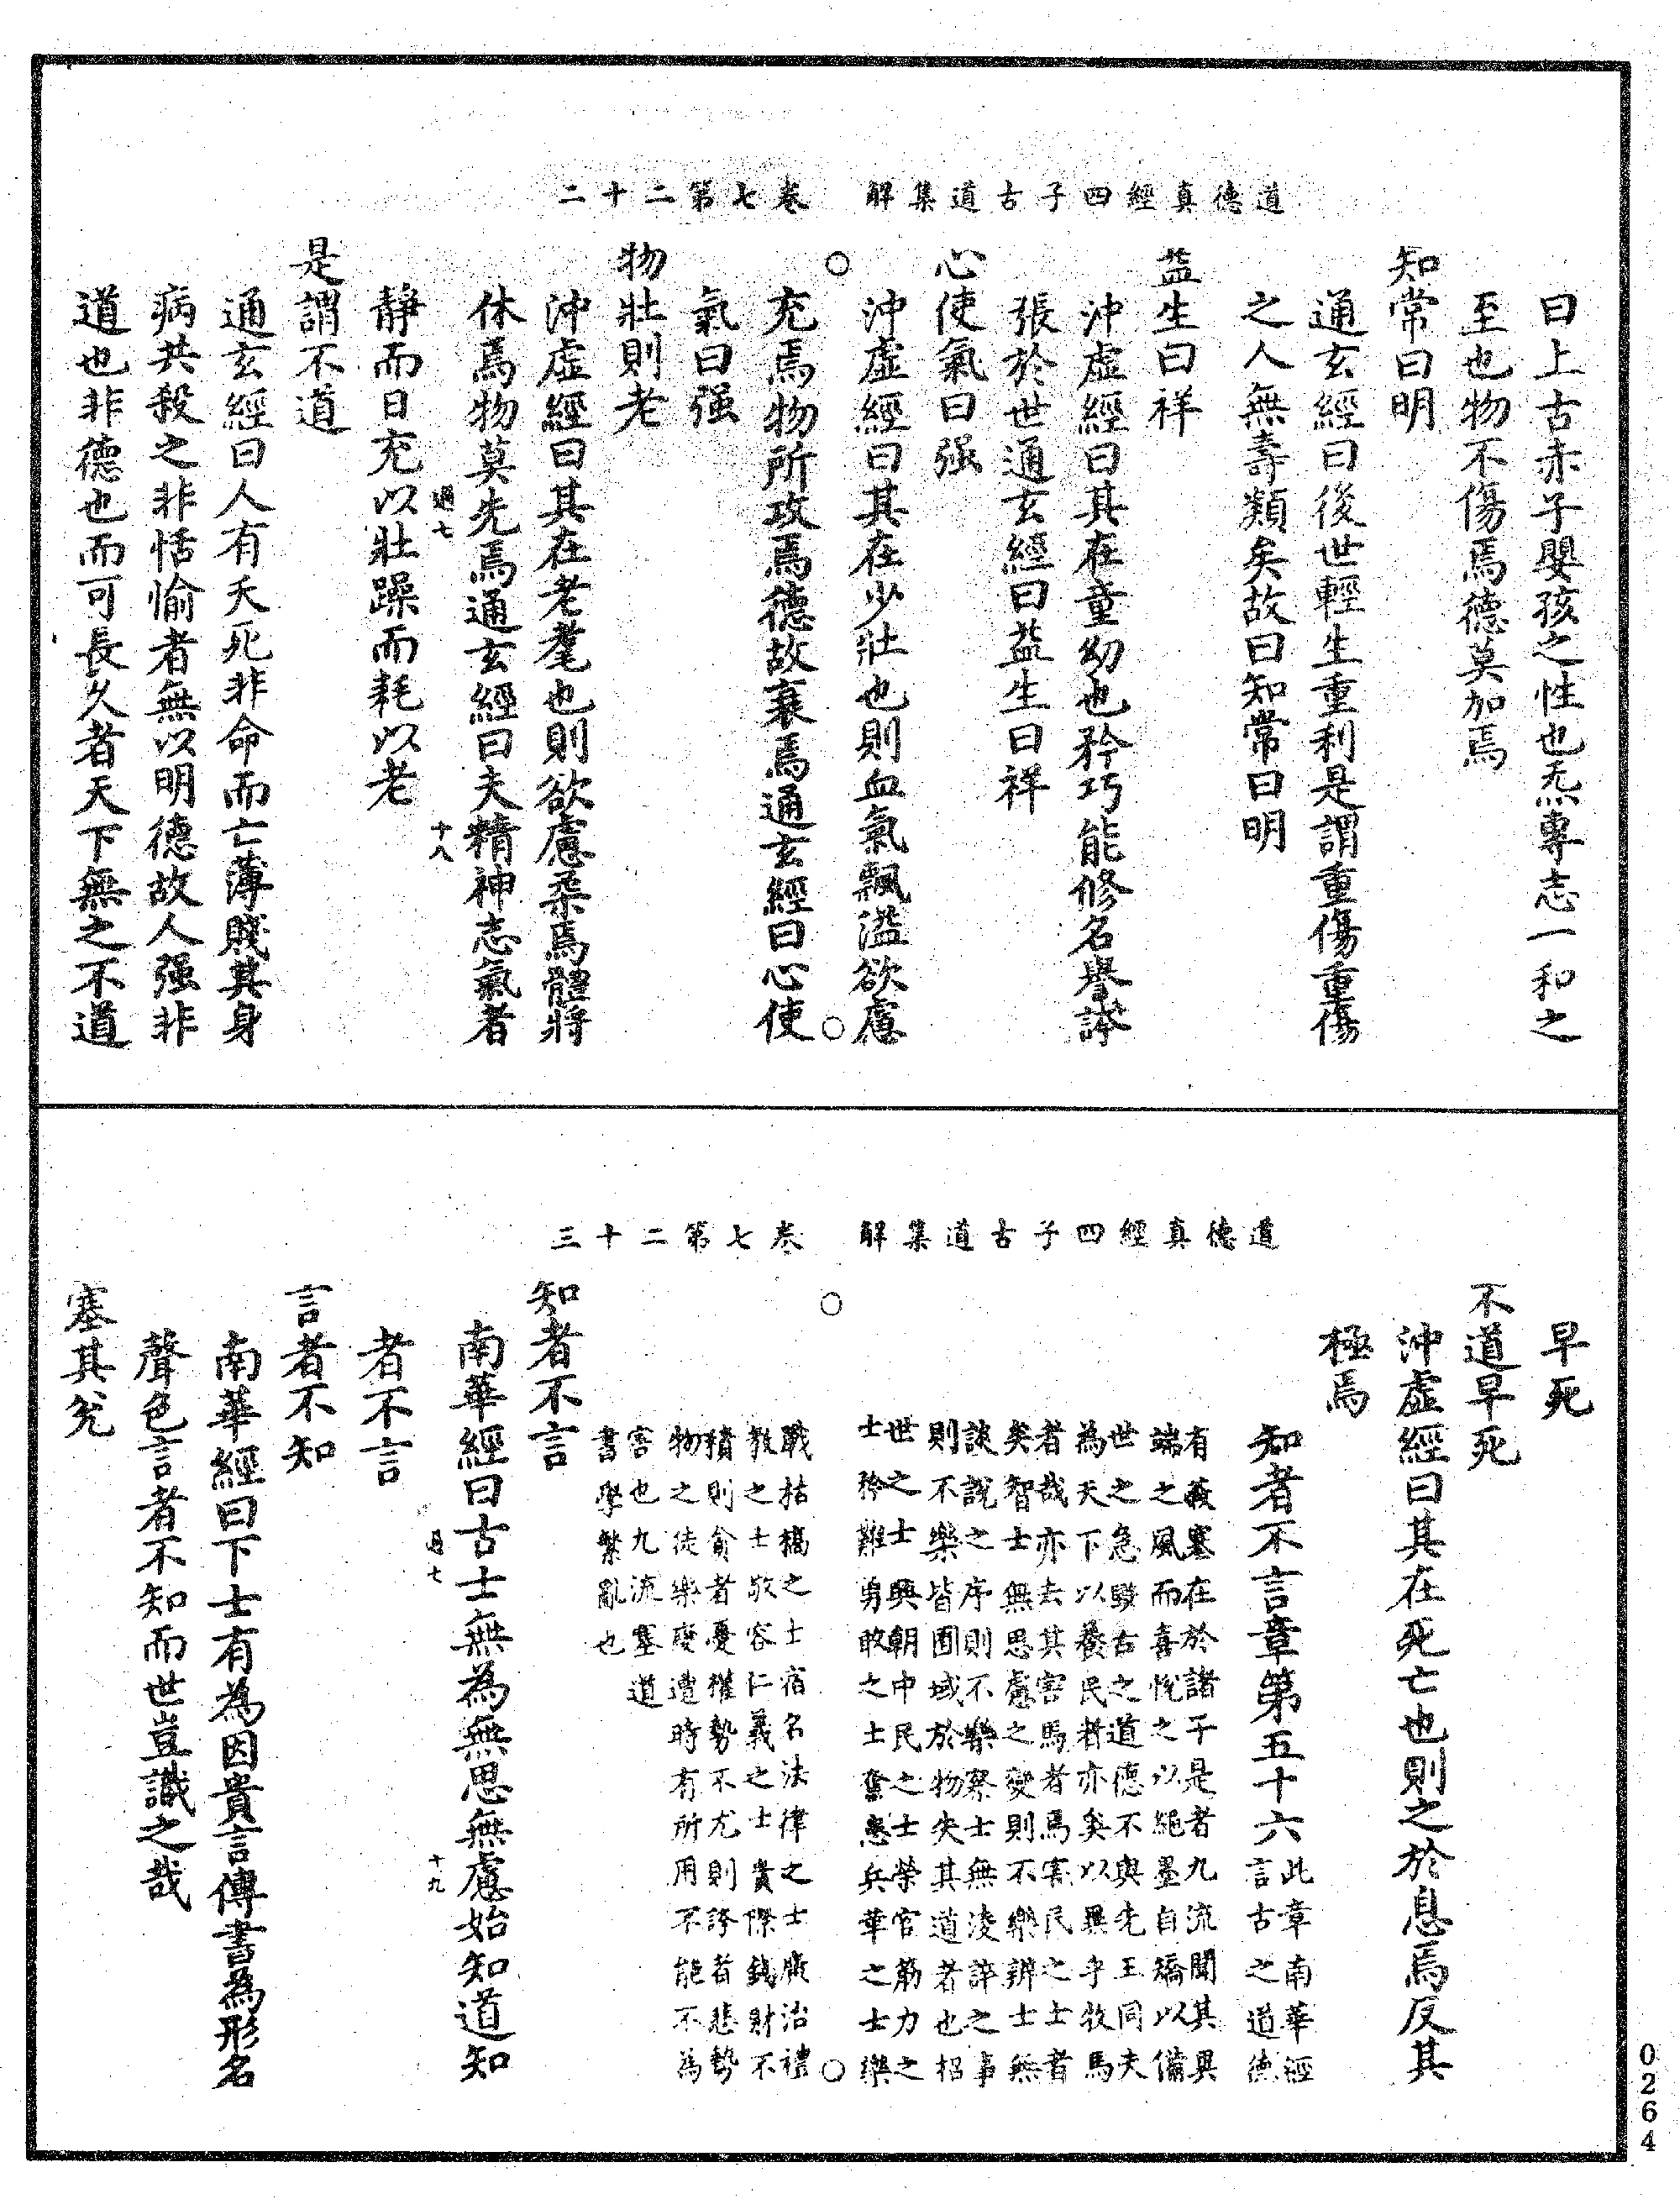 道德真經四子古道集解　卷七第二十二
曰上古赤子嬰孩之性也炁專志一和之
至也物不傷焉德莫加焉
知常曰明
通玄經曰後世輕生重利是謂重傷重傷
之人無壽類矣故曰知常曰明
益生曰祥
沖虛經曰其在童幼也矜巧能修名譽誇
張於世通玄經曰益生曰祥
心使氣曰强
沖虛經曰其在少壯也則血氣飄溢欲慮
充焉物所攻焉德故衰焉通玄經曰心使
氣曰强
物壯則老
沖虛經曰其在老耄也則欲慮柔焉體將
休焉物莫先焉通玄經曰夫精神志氣者
過七　十八
靜而日充以壯躁而耗以老
是謂不道
通玄經曰人有夭死非命而亡薄賤其身
病共殺之非恬愉者無以明德故人强非
道也非德也而可長久者天下無之不道
道德真經四子古道集解　卷七第二十三
早死
不道早死
沖虛經曰其在死亡也則之於息焉反其
極焉
知者不言章第五十六此章南華經
言古之道德
有蔽塞在於諸子是者九流聞其異
端之風而喜悅之以繩墨自矯以備
世之急驗古之道德不與先王同夫
為天下以養民者亦奚以異乎牧馬
者哉亦去其害馬者焉害民之士者
矣智士無思慮之變則不樂辨士無
談說之序則不樂察士無淩誶之事
則不樂皆囿域於物失其道者也招
世之士興朝中民之士榮官筋力之
士矜難勇敢之士奮患兵革之士樂
戰枯槁之士宿名法律之士廣治禮
教之士敬容仁義之士貴際錢財不
積則貪者憂權勢不尤則誇者悲勢
物之徒樂變遭時有所用不能不為
害也九流塞道
書學繁亂也
知者不言
南華經曰古士無為無思無慮始知道知
過七　十九
者不言
言者不知
南華經曰下士有為因貴言傳書為形名
聲色言者不知而世豈識之哉
塞其兌
0264